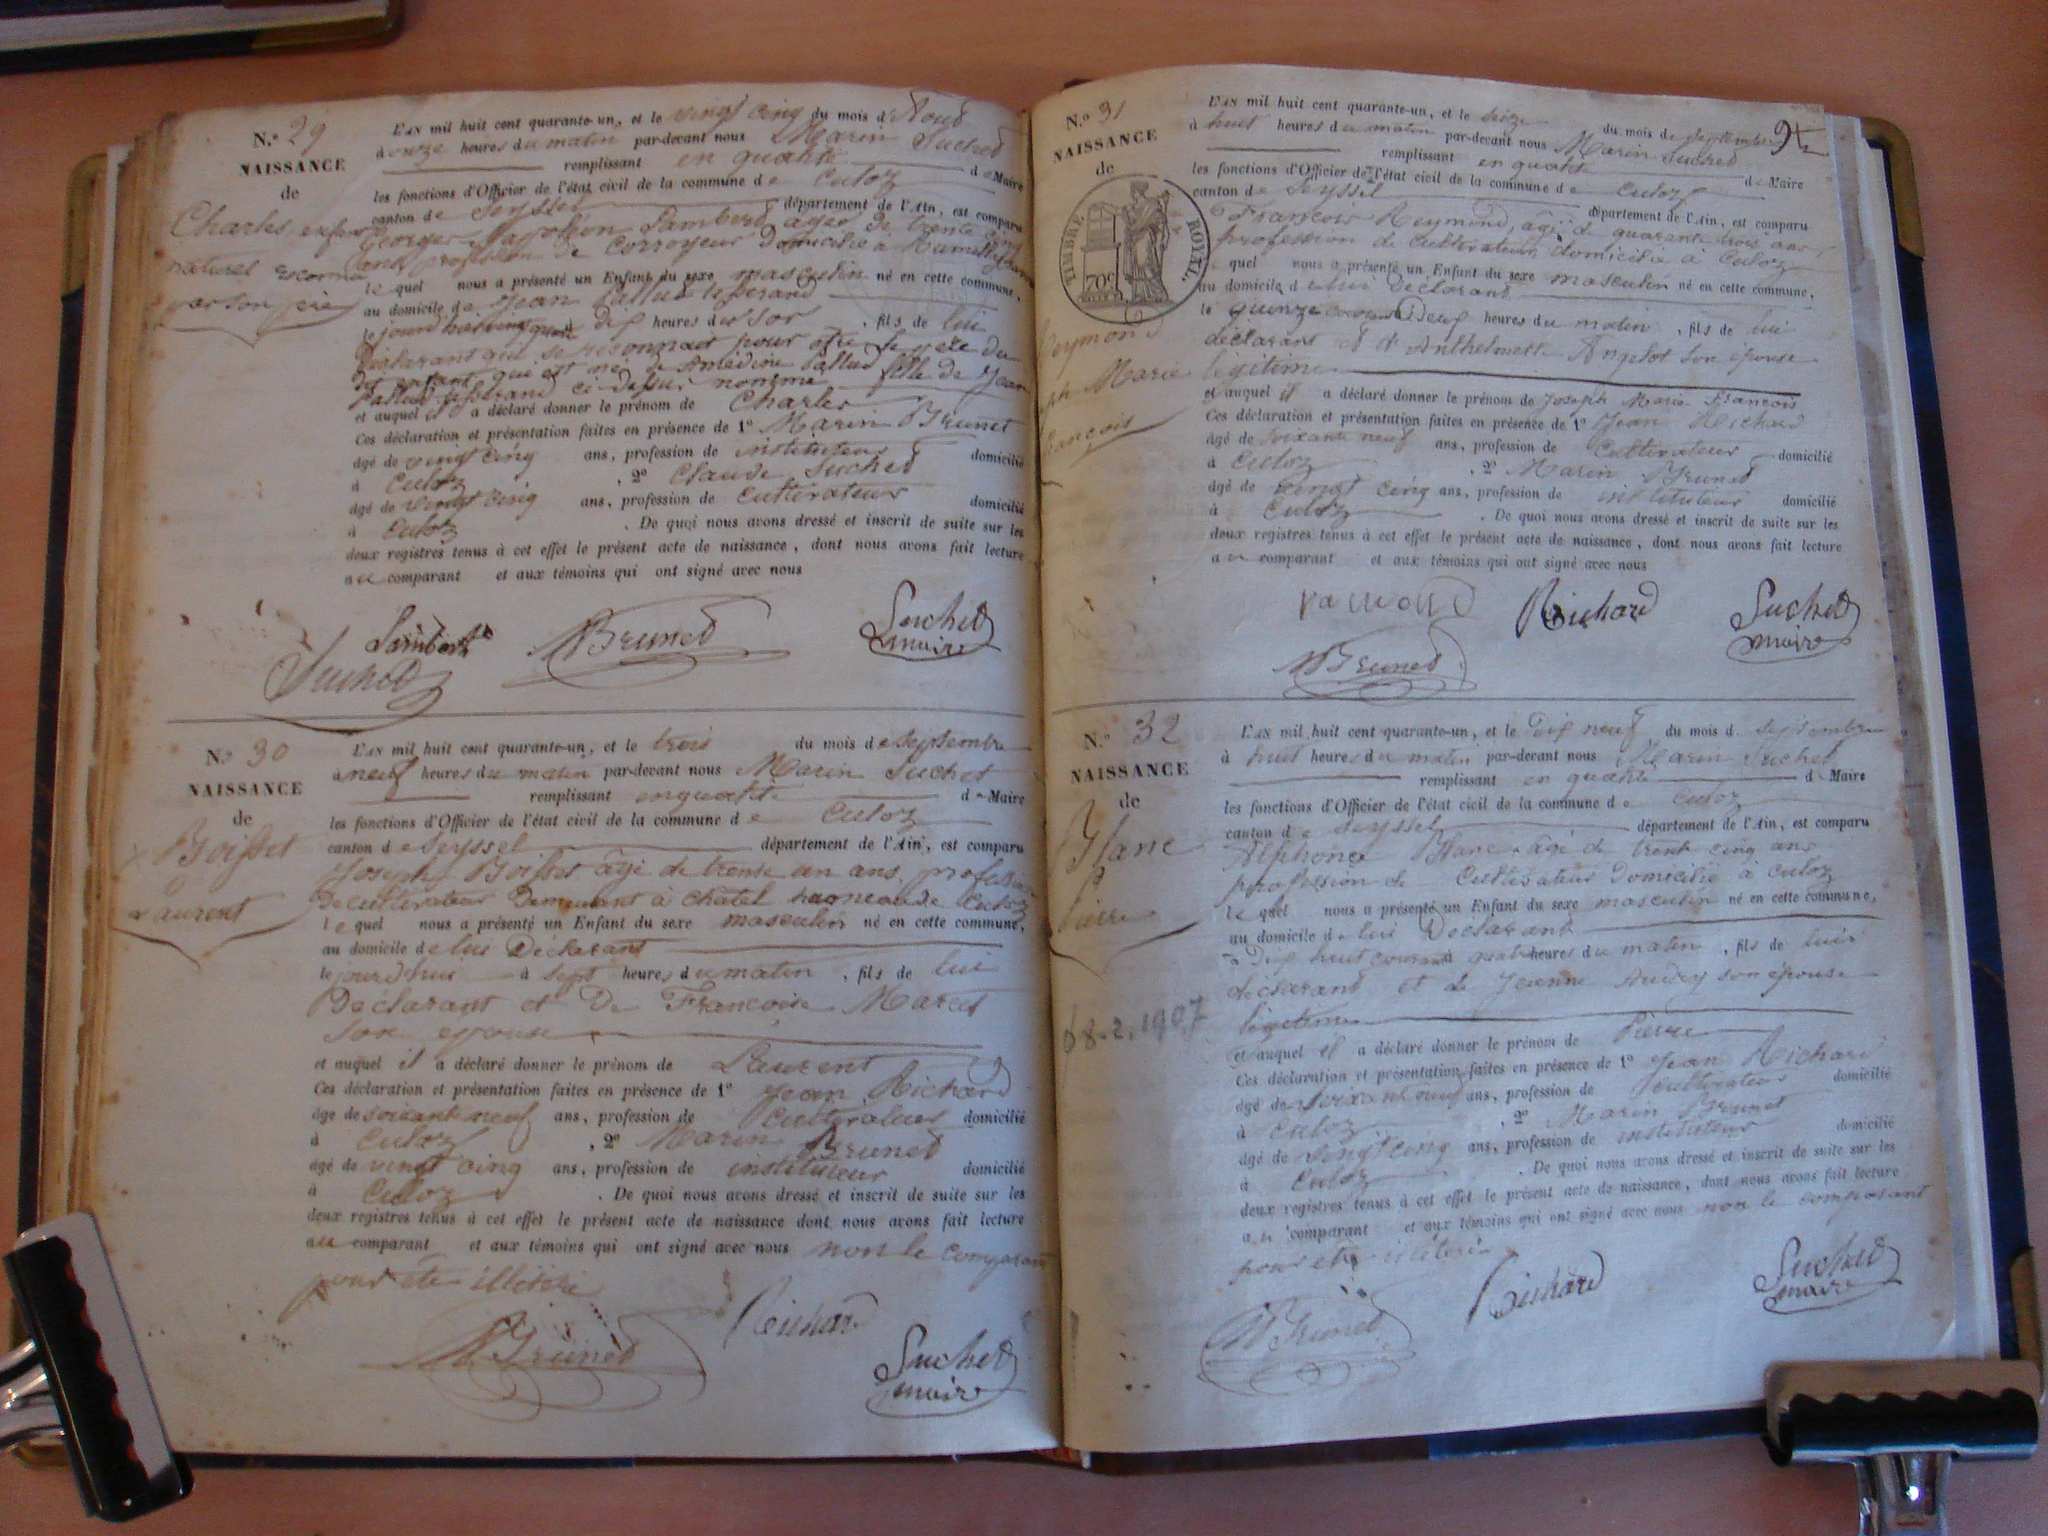 N.º 29
NAISSANCE
de
Charles, enfant
naturel reconnu
par son père
L'AN mil huit cent quarante-un, et le vingt cinq du mois d'Août
à onze heures du matin par-devant nous Marin Suchet
remplissant en qualité de Maire
les fonctions d'Officier de l'état civil de la commune de Culoz
canton de Seyssel département de l'Ain, est comparu
Georges Napoléon Lambert, âgé de trente cinq
ans, profession de Corroyeur domicilié à
le quel nous a présenté un Enfant du sexe masculin né en cette commune,
au domicile de Jean Pallud
le jourd'hui à dix heures du soir, fils de lui
Déclarant qui se reconnait pour être le père du
dit enfant qui est né de Amédine Pallud fille de Jean
Pallud ci-dessus nommé
et auquel il a déclaré donner le prénom de Charles
Ces déclaration et présentation faites en présence de 1º Marin Brunet
âgé de vingt cinq ans, profession de instituteur domicilié
à Culoz, 2º Claude Suchet
âgé de vingt cinq ans, profession de cultivateur domicilié
à Culoz. De quoi nous avons dressé et inscrit de suite sur les
deux registres tenus à cet effet le présent acte de naissance, dont nous avons fait lecture
au comparant et aux témoins qui ont signé avec nous
Lambert MBrunet Suchet
maire
Suchet
N.º 30
NAISSANCE
de
Boisset
Laurent
L'AN mil huit cent quarante-un, et le trois du mois de Septembre
à neuf heures du matin par-devant nous Marin Suchet
remplissant en qualité de Maire
les fonctions d'Officier de l'état civil de la commune de Culoz
canton de Seyssel département de l'Ain, est comparu
Joseph Boisset âgé de trente un ans, profession
De cultivateur Demeurant à chatel hameau de Culoz
le quel nous a présenté un Enfant du sexe masculin né en cette commune,
au domicile de lui Déclarant
le jourd'hui à sept heures du matin, fils de lui
Déclarant et De Françoise Marcet
son epouse
et auquel il a déclaré donner le prénom de Laurent
Ces déclaration et présentation faites en présence de 1º Jean Richard
âgé de soixante neuf ans, profession de Cultivateur domicilié
à Culoz, 2º Marin Brunet
âgé de vingt cinq ans, profession de instituteur domicilié
à Culoz. De quoi nous avons dressé et inscrit de suite sur les
deux registres tenus à cet effet le présent acte de naissance dont nous avons fait lecture
au comparant et aux témoins qui ont signé avec nous non le comparant
pour être illitéré
MBrunet Richard Suchet
maire
N.º 31
NAISSANCE
de
TIMBRE ROYAL
70c
Reymond
Joseph Marie
François
L'AN mil huit cent quarante-un, et le seize du mois de Septembre
à huit heures du matin par-devant nous Marin Suchet
remplissant en qualité de Maire
les fonctions d'Officier de l'état civil de la commune de Culoz
canton de Seyssel département de l'Ain, est comparu
François Reymond, âgé de quarante trois ans
profession de cultivateur, domicilié à Culoz
le quel nous a présenté un Enfant du sexe masculin né en cette commune,
au domicile de lui Déclarant
le quinze courant à Neuf heures du matin, fils de lui
déclarant et d'Anthelmette Angelot son épouse
légitime
et auquel il a déclaré donner le prénom de Joseph Marie François
Ces déclaration et présentation faites en présence de 1º Jean Richard
âgé de soixante neuf ans, profession de Cultivateur domicilié
à Culoz, 2º Marin Brunet
âgé de vingt cinq ans, profession de instituteur domicilié
à Culoz. De quoi nous avons dressé et inscrit de suite sur les
deux registres tenus à cet effet le présent acte de naissance, dont nous avons fait lecture
au comparant et aux témoins qui ont signé avec nous
Richard Suchet
maire
MBrunet
N.º 32
NAISSANCE
de
Blanc
Pierre
8-2.1907
L'AN mil huit cent quarante-un, et le dix neuf du mois d. septembre
à huit heures du matin par-devant nous Marin Suchet
remplissant en qualité de Maire
les fonctions d'Officier de l'état civil de la commune de Culoz
canton de Seyssel département de l'Ain, est comparu
Alphonse Blanc âgé de trente cinq ans
profession de Cultivateur domicilié à Culoz
le quel nous a présenté un Enfant du sexe masculin né en cette commune,
au domicile de lui Déclarant
le Dix huit courant à quatre heures du matin, fils de lui
déclarant et de Jeanne Audry son épouse
légitime
et auquel il a déclaré donner le prénom de Pierre
Ces déclaration et présentation faites en présence de 1º Jean Richard
âgé de soixante neuf ans, profession de cultivateur domicilié
à Culoz, 2º Marin Brunet
âgé de vingt cinq ans, profession de instituteur domicilié
à Culoz. De quoi nous avons dressé et inscrit de suite sur les
deux registres tenus à cet effet le présent acte de naissance, dont nous avons fait lecture
au comparant et aux témoins qui ont signé avec nous non le comparant
pour être illitéré
MBrunet Richard Suchet
maire